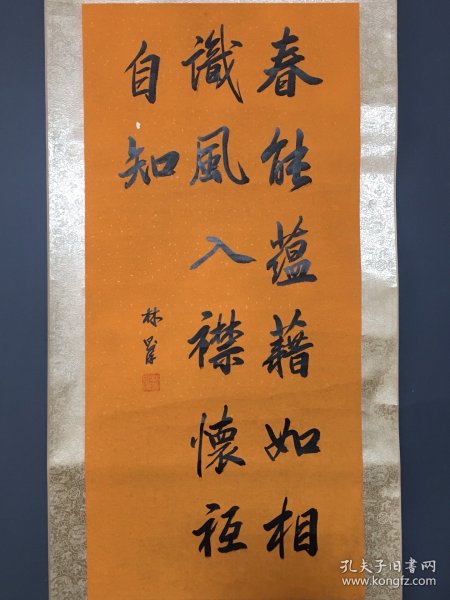 春能蘊藉如相
識風入襟懷秖
自知
林
孔夫子旧书网
www.kongfz.com